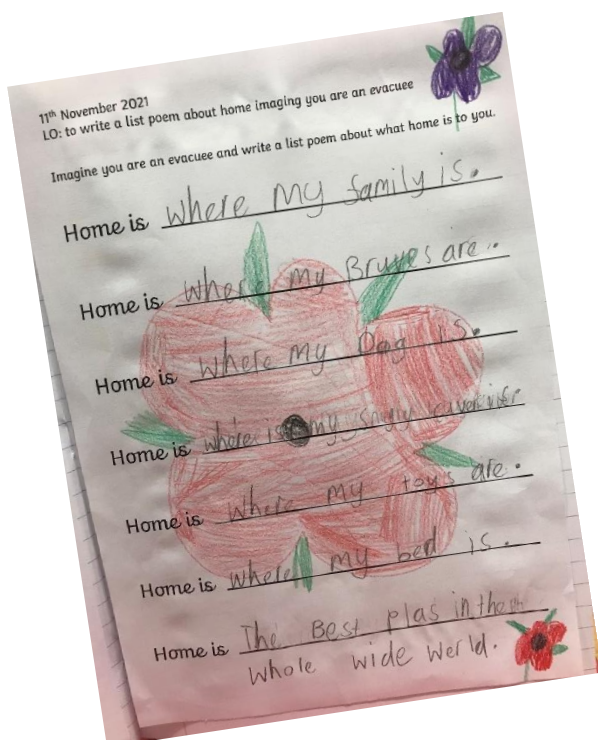 11th November 2021
LO: to write a list poem about home imaging you are an evacuee
Imagine you are an evacuee and write a list poem about what home is to you.
Home is where my family is.
Home is where my Bruves are.
Home is where my Dog is.
Home is where is my snugly
Home is where my toys are.
Home is where my bed is.
Home is The Best plas in the
whole wide werld.